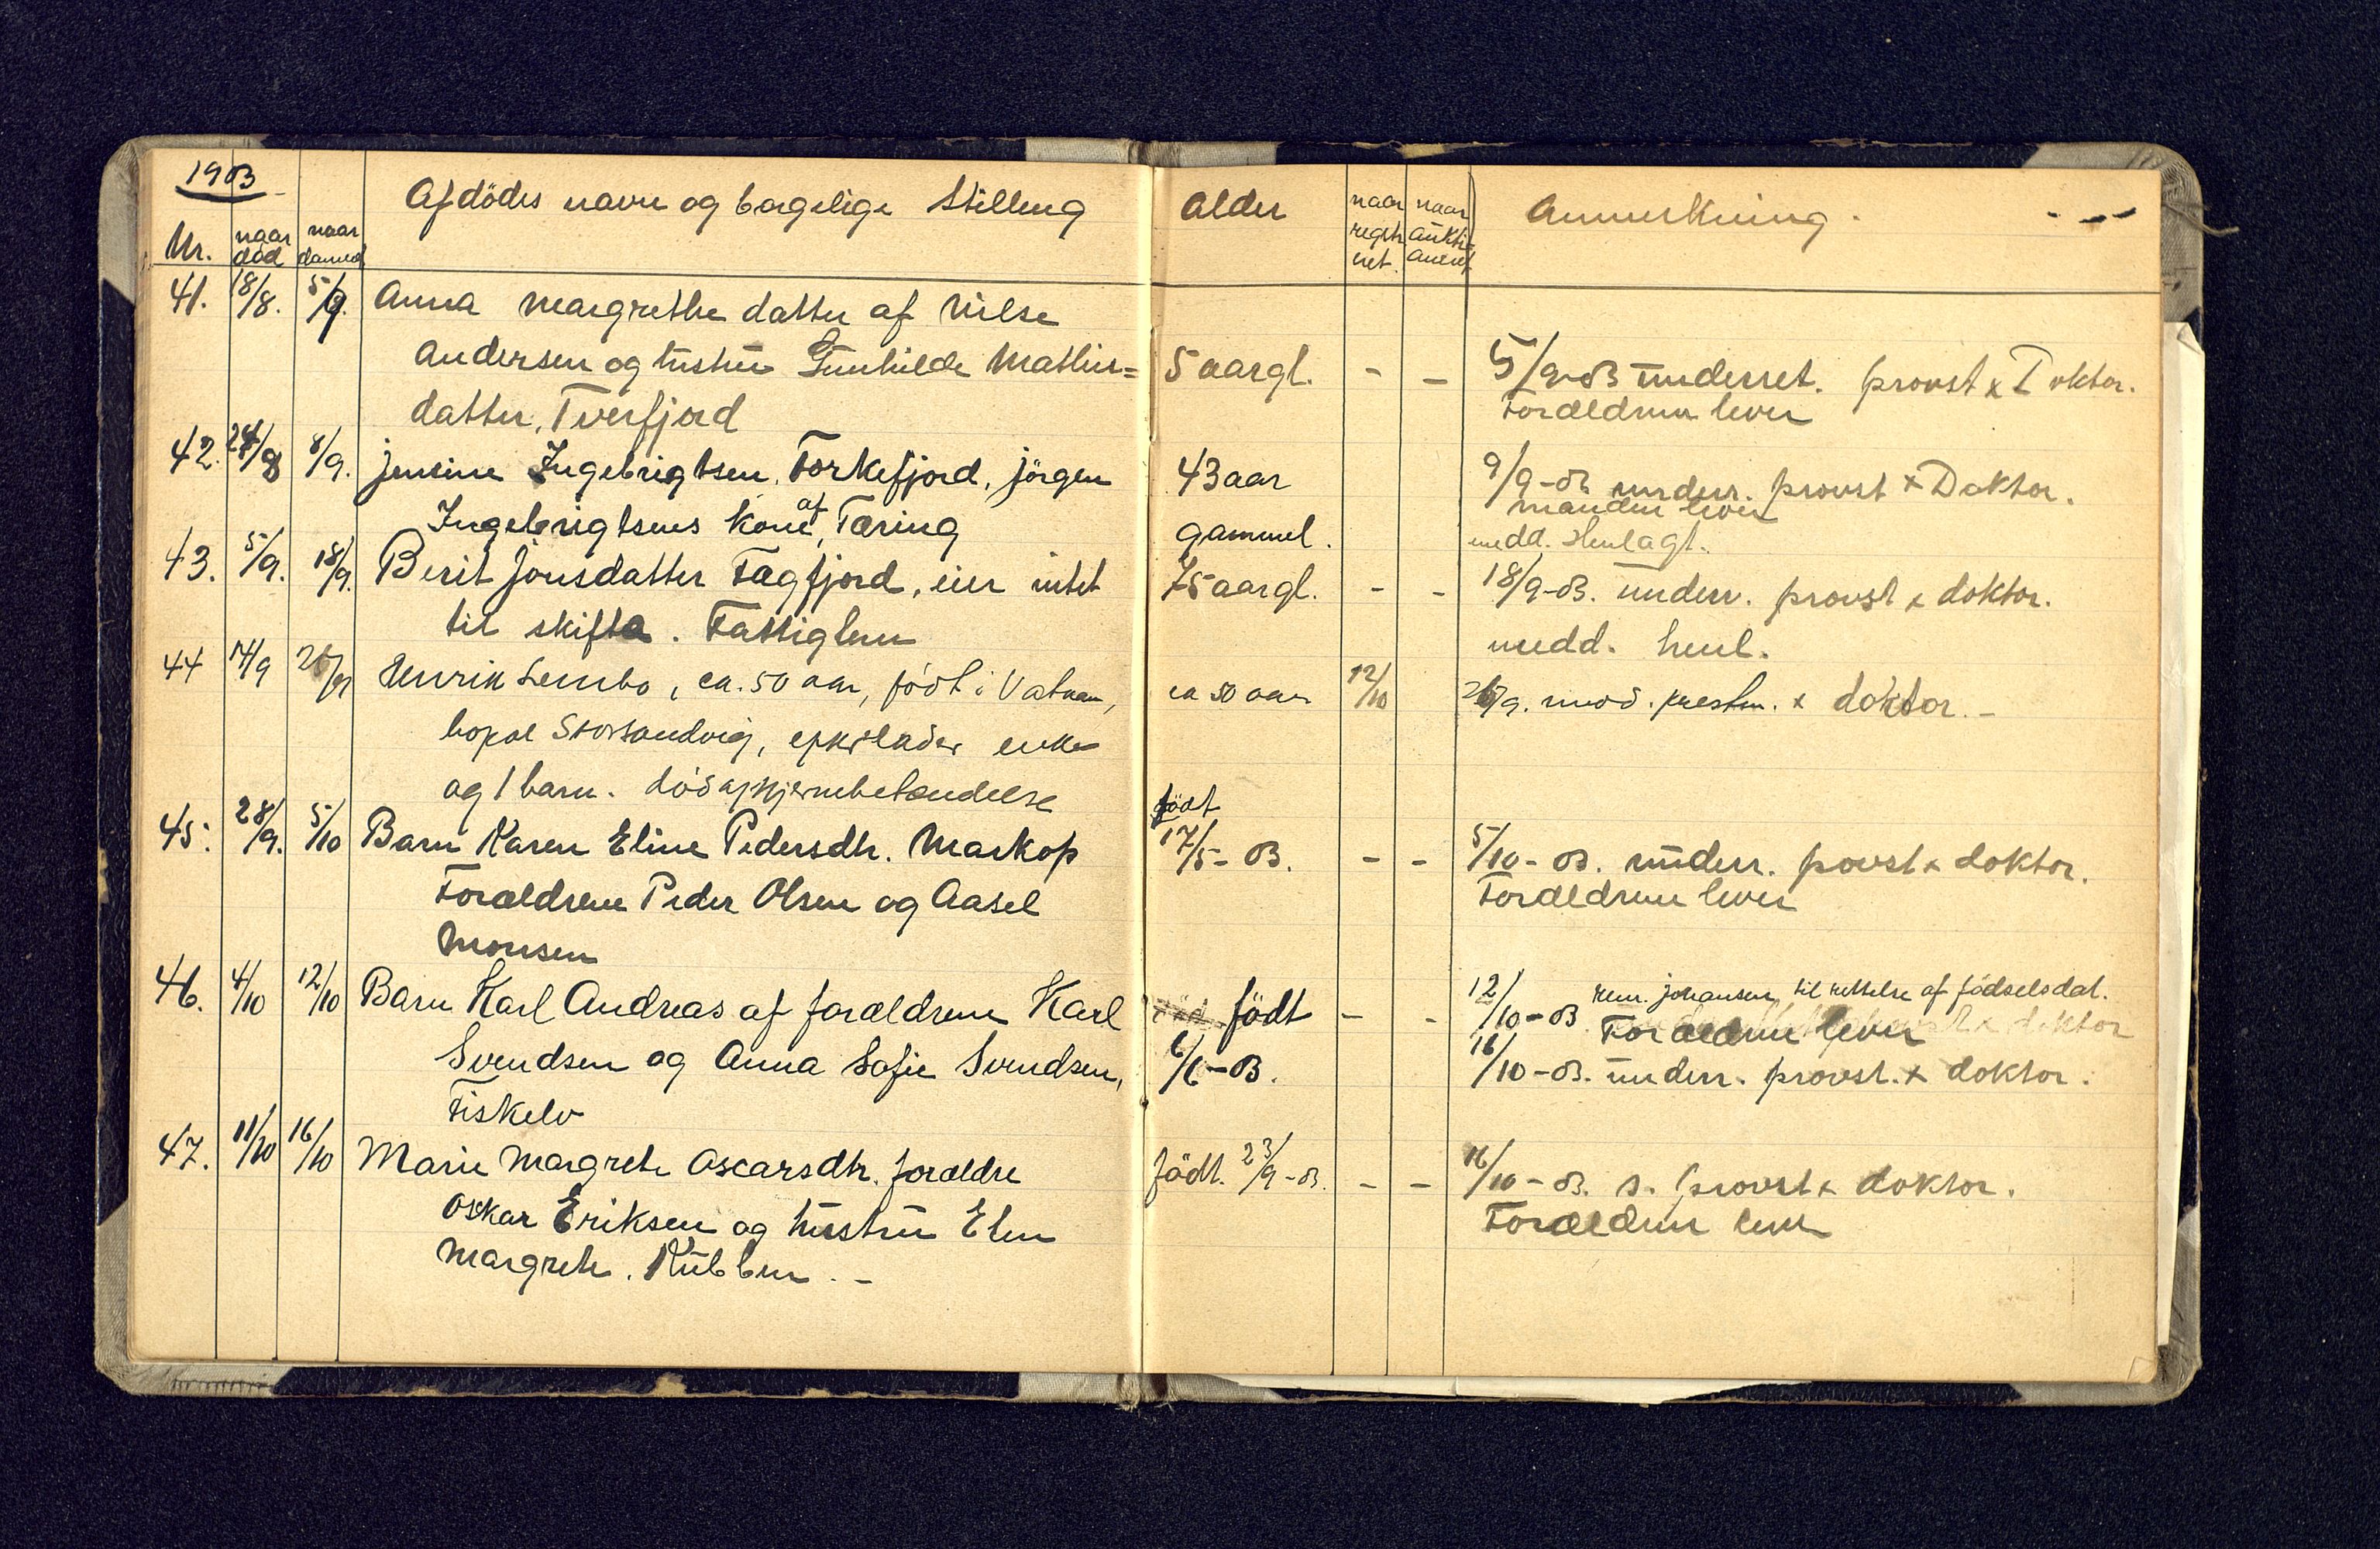 1903
Nr.
naar död
naar
Afdödes navn og borgelige Stilling
41. 18/8. 5/9. Anna Margrethe datter af Nilse
Andersen og hustru Gunhilde Mathis=
datter, Tverfjord
42. 24/8 8/9. jensine Ingebrigtsen, Torkefjord, jörgen
Ingebrigtsens kone, af Tæring
43. 5/9. 18/9. Berit Jonsdatter Fægfjord, eier intet
til skifta. Fattiglem
44 14/9 26/9 Henrik Lembo, ca. 50 aar, född i Vatnan,
bopæl Storsandvig, efterlader enke
og 1 barn. död af hjernebetændelse
45. 28/9. 5/10 Barn Karen Eline Pedersdtr. Markop
Forældrene Peder Olsen og Aasel
Monsen
46. 4/10 12/10 Barn Karl Andreas af forældrene Karl
Svendsen og Anna Sofie Svendsen,
Fiskelv
47. 11/10 16/10 Marie Margrete Oscarsdtr. forældre
Oskar Eriksen og hustru Elen
Margrete. Kubben. -
Alder
naar regstreret.
naar auktioneret
Anmerkning.
5 aargl. - - 5/9-03 underret. provst x Doktor.
Forældrene lever
43 aar 9/9-03 underr. provst x Doktor.
manden lever
gammel. medd. Henlagt.
75 aargl. - - 18/9-03. underr. provst x doktor.
medd. henl.
ca 50 aar 12/10 26/9. medd. presten. x doktor. -
födt
17/5-03. - - 5/10-03. underr. povst x doktor.
Forældrene lever
födt - - 12/10-03 rem. johansen til rettelse af födselsdat.
Forældrene lever
6/6-03. 16/10-03. underr. provst. x doktor.
födt. 23/9-03. - - 16/10-03. s. provst x doktor.
Forældrene lever